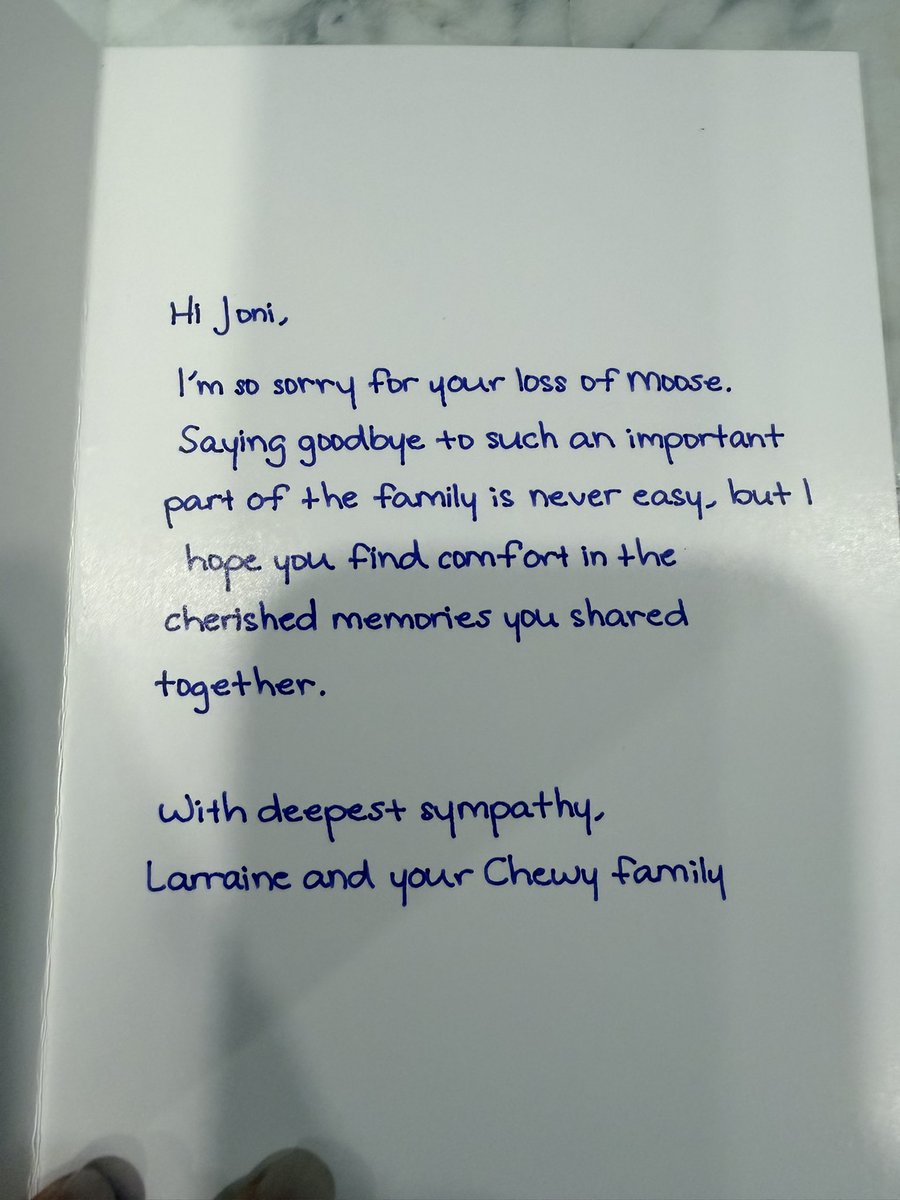 Hi Joni,
I'm so sorry for your loss of Moose.
Saying goodbye to such an important
part of the family is never easy, but I
hope you find comfort in the
cherished memories you shared
together.
With deepest sympathy,
Larraine and your Chewy family